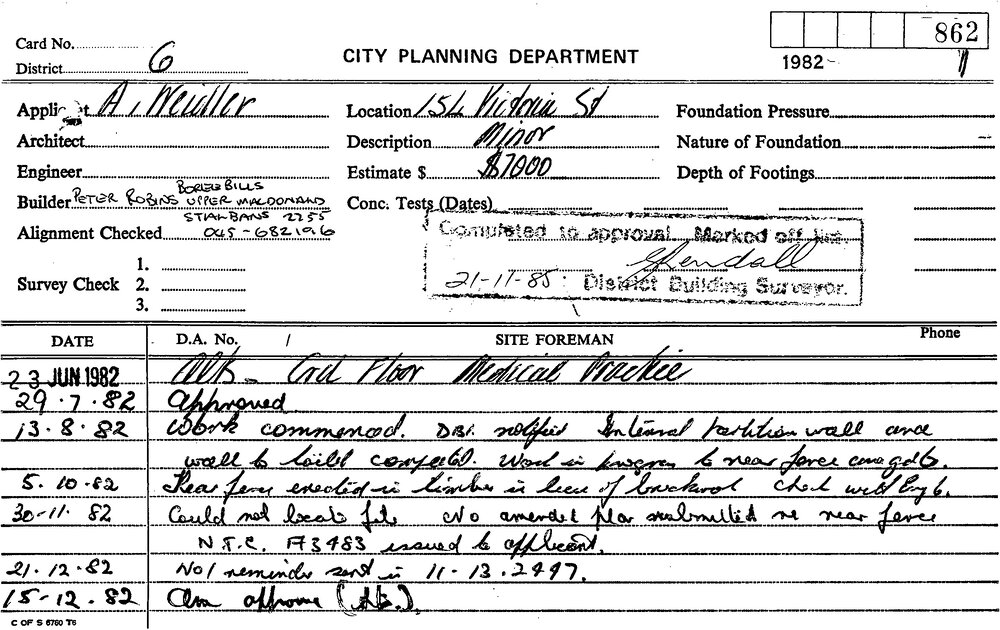 862
Card No.
District 6
CITY PLANNING DEPARTMENT
1982
Applicant A. Weidler
Location 154 Victoria St
Foundation Pressure
Architect
Description Minor
Nature of Foundation
Engineer
Estimate $ $7000
Depth of Footings
BORELE BILLS
Builder PETER ROBINS UPPER MACDONALD
ST ALBANS 2255
Conc. Tests (Dates)
Alignment Checked 045-682196
Completed to approval. Marked off list
Kendall
21-11-85 District Building Surveyor.
Survey Check 1.
2.
3.
DATE
D.A. No. /
SITE FOREMAN
Phone
23 JUN 1982 Grd Floor Medical Practice
29.7.82 Approved
13.8.82 Work commenced. DBS. notified Internal partition wall and
wall to toilet completed. Work in progress to rear fence
5.10.82 Rear fence erected in timber in lieu of brickwork Check with
30-11 82 Could not locate file No amended plan submitted re rear fence
N.T.C. A3483 issued to applicant.
21.12.82 No1 reminder sent in 11-13.2497.
15-12.82 approve
C OF S 6760 T6